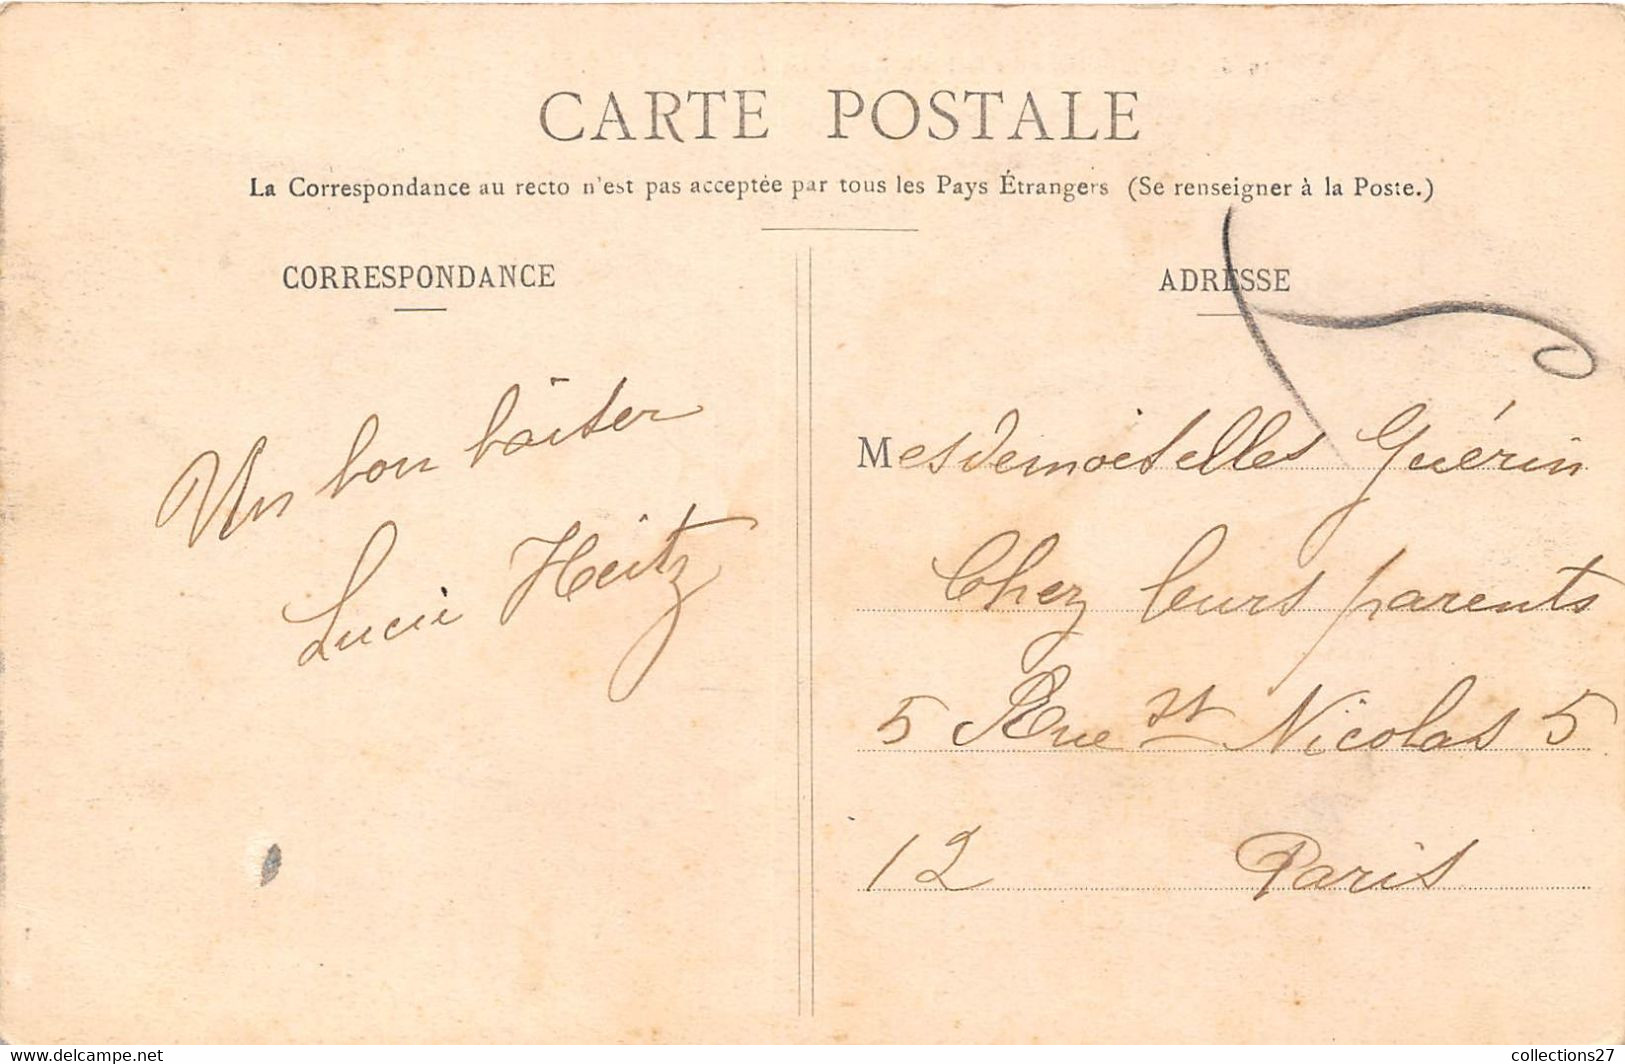 CARTE POSTALE
La Correspondance au recto n'est pas acceptée par tous les Pays Étrangers (Se renseigner à la Poste.)
CORRESPONDANCE
Un bon baiser
Lucie Heitz
ADRESSE
Mesdemoiselles Guérin
Chez leurs parents
5 Rue St Nicolas 5
12 Paris
collections27